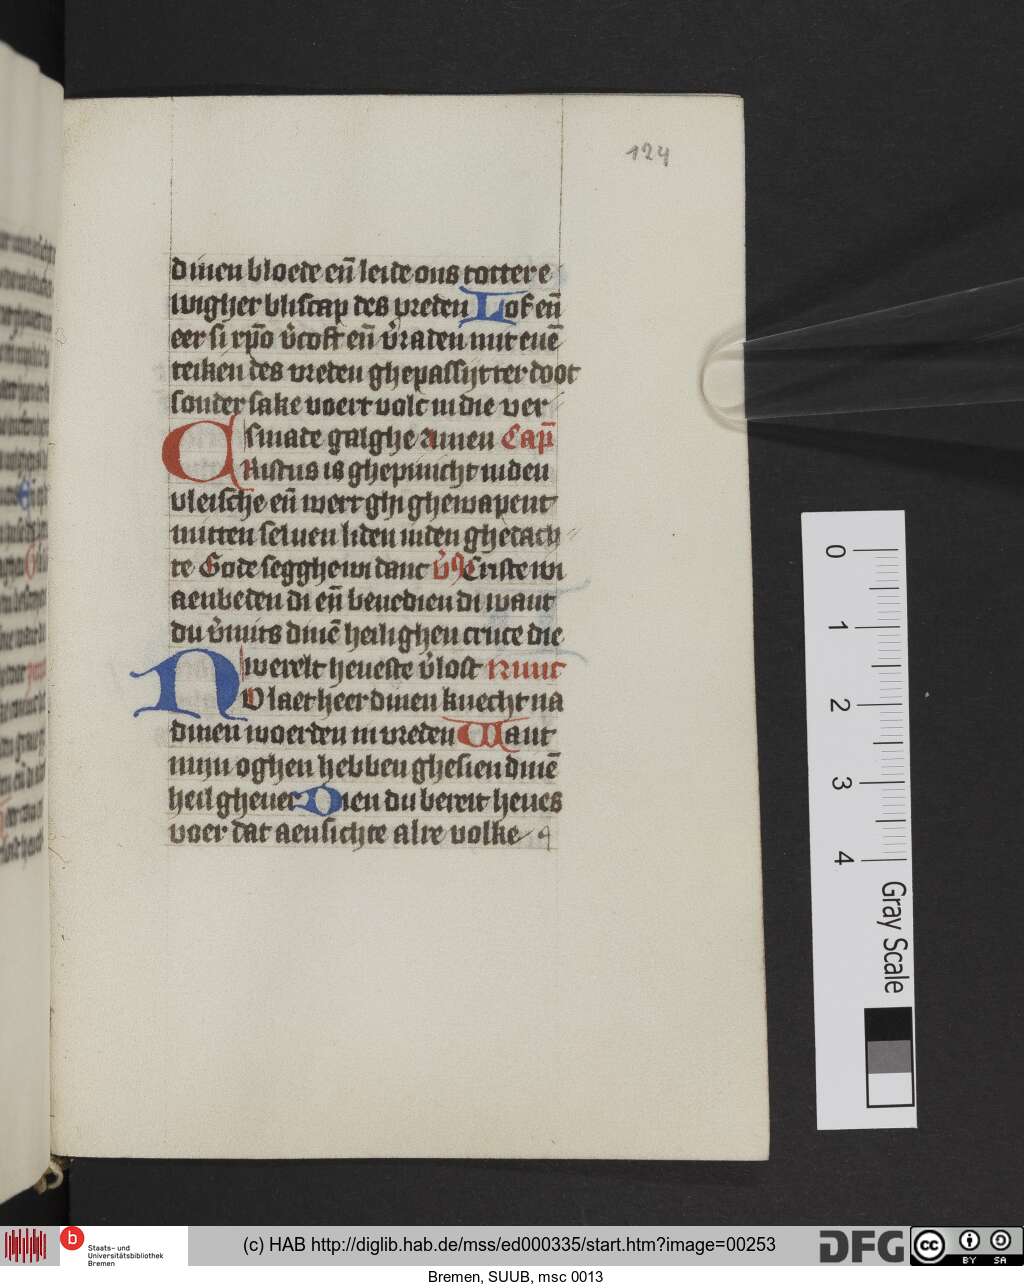 124
dinen bloede eñ leide ons totter e
wigher bliscap des vreden Lof eñ
eer si xp̄o v̉coft eñ v̉raden mit enē
teiken des vreden ghepassijt ter doot
sonder sake voert volc in die ver
smade galghe Amen Cap̄
CRistus is ghepinicht in den
vleische eñ wert ghi ghewapent
mitten seluen liden in den ghedach
te Gode segghe wi danc v̉s Criste wi
aenbeden di eñ benedien di want
du v̉mits dinē heilighen cruce die
werelt heueste v̉lost Nunc
NV laet heer dinen knecht na
dinen woerden in vreden Want
mijn oghen hebben ghesien dinē
heilgheuer Dien du bereit heues
voer dat aensichte alre volke
0
1
2
3
4
Gray Scale
b
Staats- und
Universitätsbibliothek
Bremen
(c) HAB http://diglib.hab.de/mss/ed000335/start.htm?image=00253
DFG
cc
BY SA
Bremen, SUUB, msc 0013